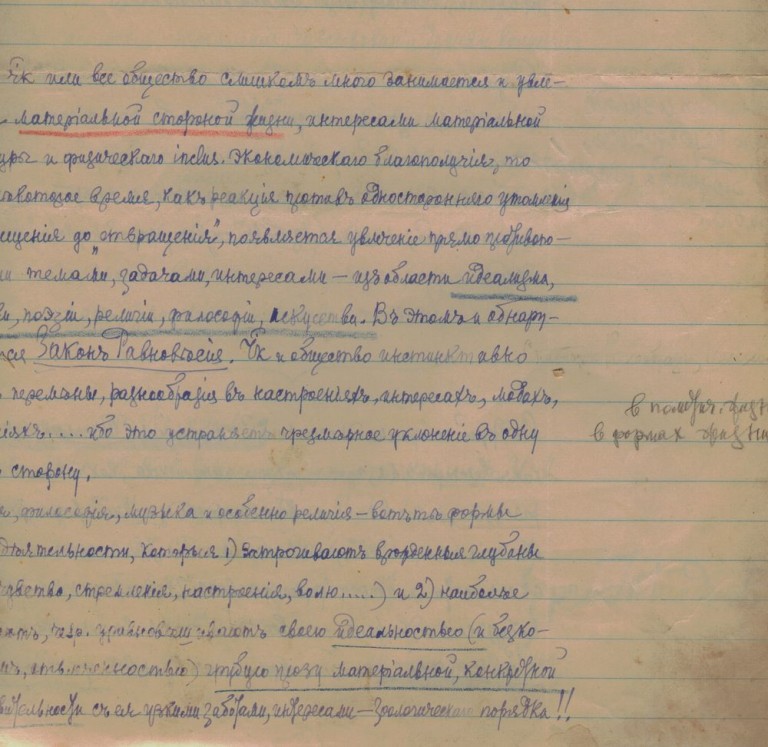 Чк или все общество слишкомъ много занимается и увле-
матеріальной стороной жизни, интересами матеріальной
и физическаго экономическаго благополучія, то
некоторое время, какъ реакція противъ односторонняго утомленія
до "отвращенія", появляется увлеченіе прямо противопо-
темами, задачами, интересами — изъ области идеализма,
поэзіи, религіи, философіи, искусства. Въ этомъ и обнару-
Законъ Равновѣсія. Чк и общество инстинктивно
перемѣны, разнообразія въ настроеніяхъ, интересахъ, модахъ,
.... ибо это устраняетъ чрезмѣрное уклоненіе въ одну
сторону.
в формах жизни
философія, музыка и особенно религія — вотъ тѣ формы
дѣятельности, которыя 1) затрогиваютъ врожденныя глубины
чувство, стремленія, настроенія, волю.....) и 2) наиболѣе
своею идеальностью (и безко-
грубую прозу матеріальной, конкретной
съ ея узкими заботами, интересами — зоологическаго порядка!!